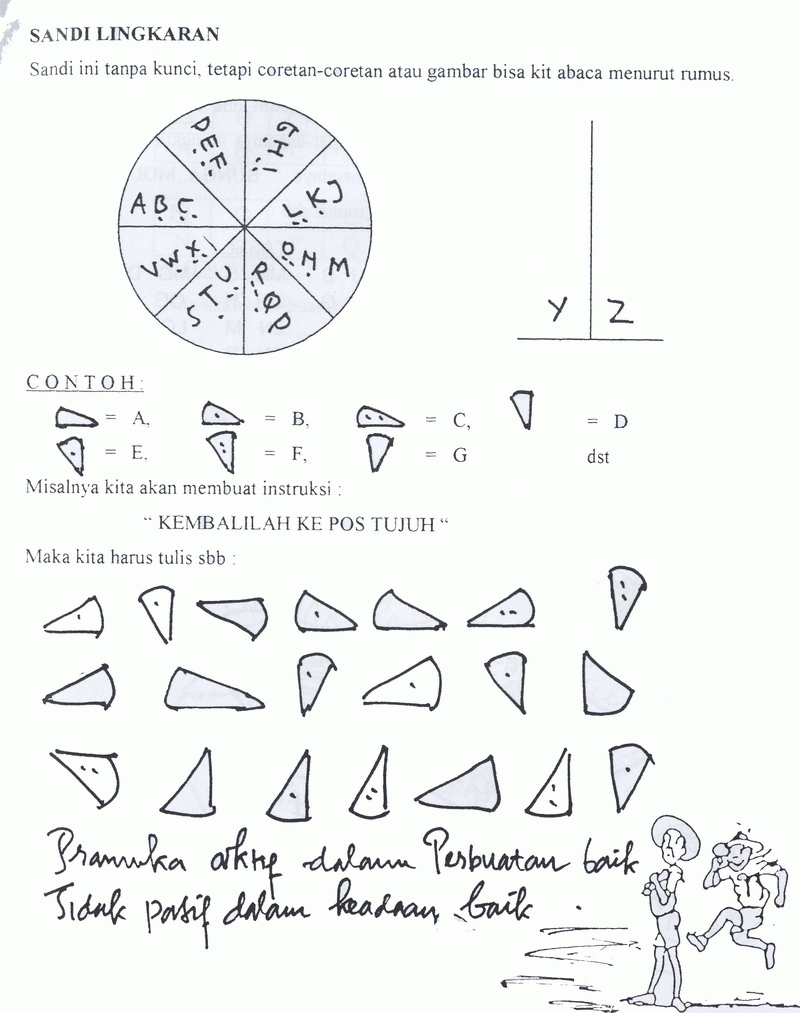 SANDI LINGKARAN
Sandi ini tanpa kunci, tetapi coretan-coretan atau gambar bisa kit abaca menurut rumus.
D E F
G H I
A B C
L K J
V W X
O N M
S T U
R Q P
Y Z
CONTOH:
= A, = B, = C, = D
= E, = F, = G dst
Misalnya kita akan membuat instruksi :
“ KEMBALILAH KE POS TUJUH “
Maka kita harus tulis sbb :
Pramuka aktif dalam Perbuatan baik
Tidak pasif dalam keadaan baik .